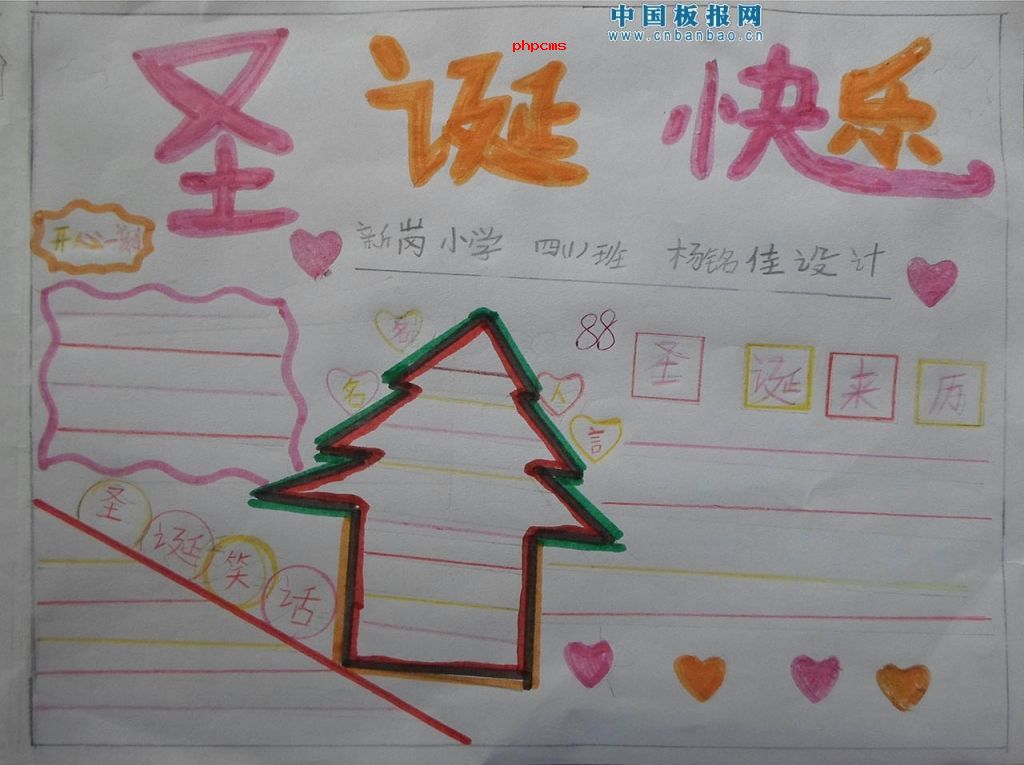 中国板报网
www.cnbanbao.cn
phpcms
圣诞快乐
开心一刻
新岗小学 四(1)班 杨铭佳设计
88
名
名人
言
圣诞来历
圣诞笑话